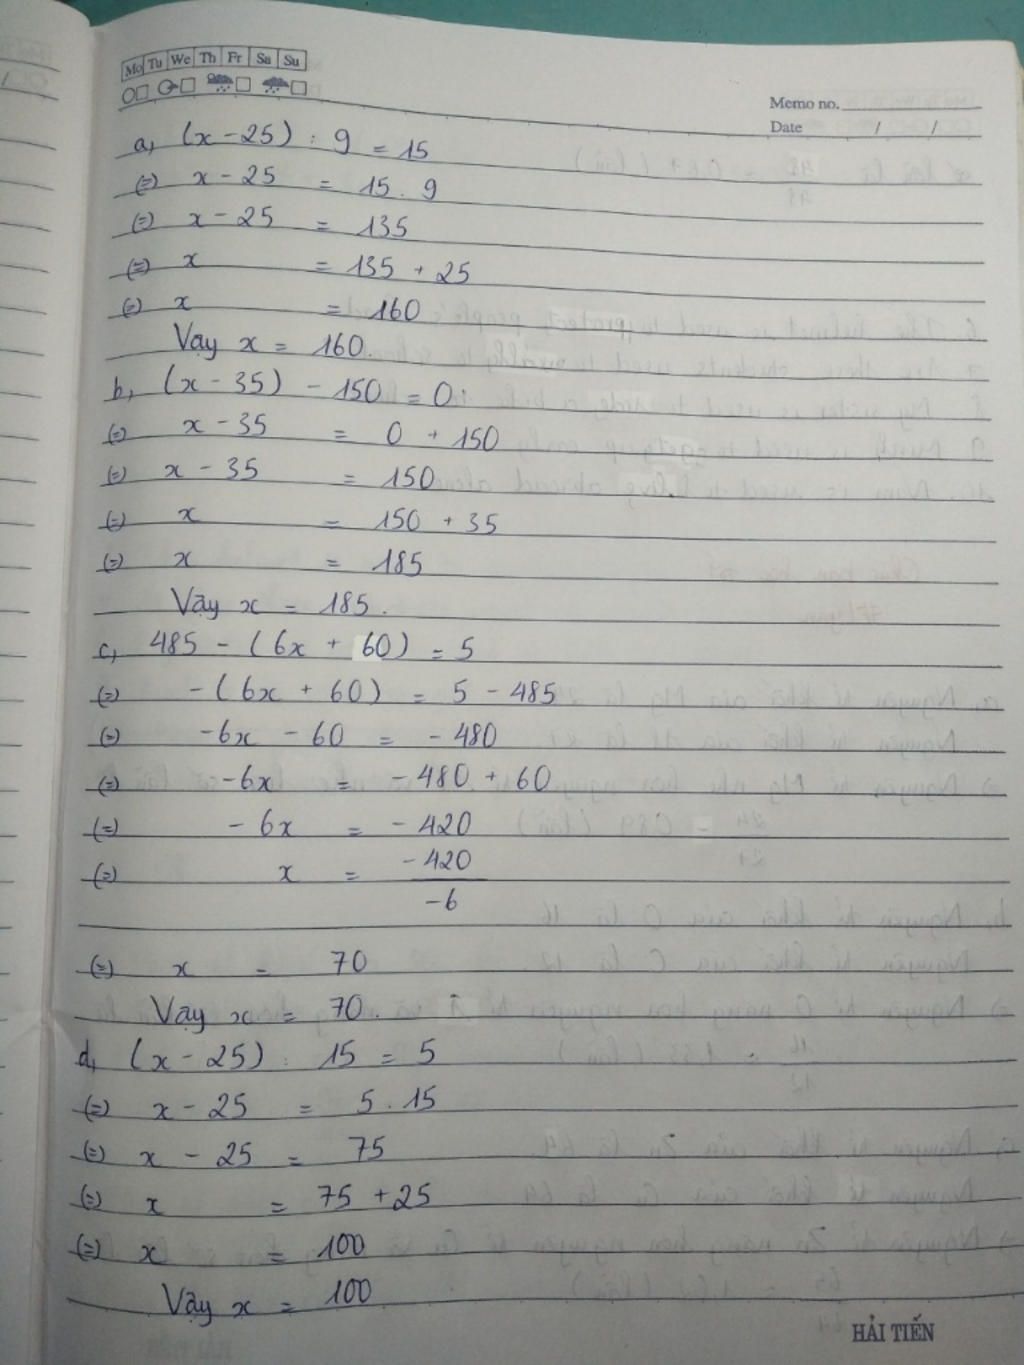 Mo Tu We Th Fr Sa Su
Memo no.
Date / /
a, (x - 25) : 9 = 15
(=) x - 25 = 15 . 9
(=) x - 25 = 135
(=) x = 135 + 25
(=) x = 160
Vay x = 160.
b, (x - 35) - 150 = 0
(=) x - 35 = 0 + 150
(=) x - 35 = 150
(=) x = 150 + 35
(=) x = 185
Vậy x = 185.
c, 485 - (6x + 60) = 5
(=) - (6x + 60) = 5 - 485
(=) -6x - 60 = - 480
(=) -6x = - 480 + 60
(=) - 6x = - 420
(=) x = -420 / -6
(=) x = 70
Vậy x = 70.
d, (x - 25) : 15 = 5
(=) x - 25 = 5 . 15
(=) x - 25 = 75
(=) x = 75 + 25
(=) x = 100
Vậy x = 100
HẢI TIẾN